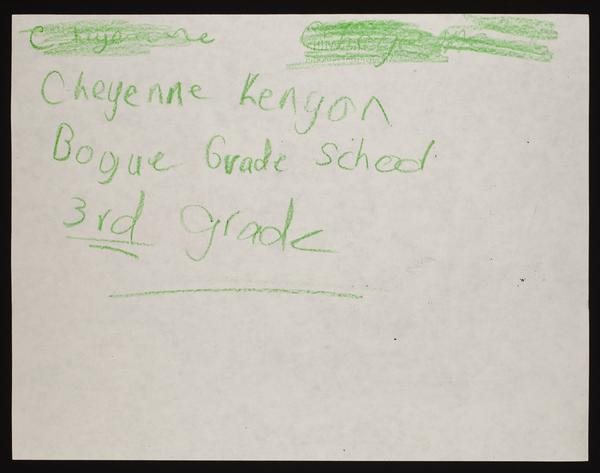 Cheyenne
Cheyenne Kenyon
Bogue Grade School
3rd grade